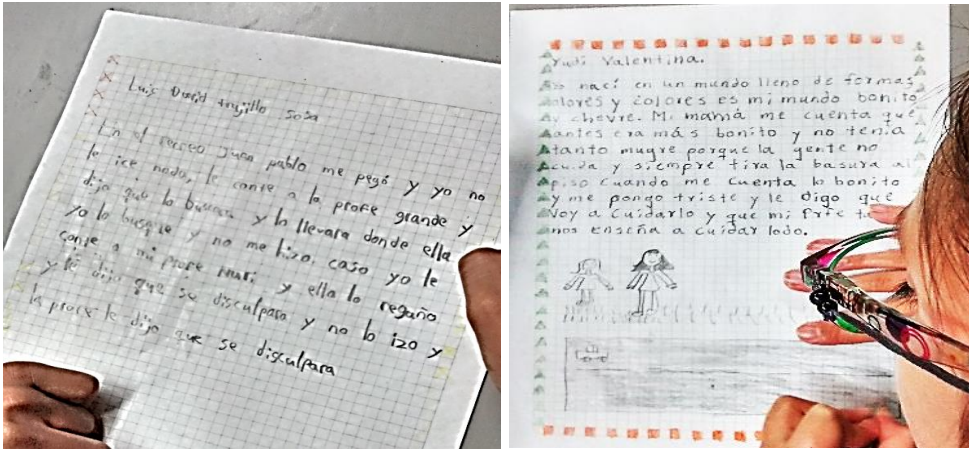 Luis David trujillo sosa
En el recreo juan pablo me pegó y yo no
le ice nada, le conte a la profe grande y
dijo que lo buscara y lo llevara donde ella
yo lo busque y no me hizo caso yo le
conte a mi profe y ella lo regaño
y le dijo que se disculpara y no lo izo y
la profe le dijo que se disculpara
Yudi Valentina.
Yo nací en un mundo lleno de formas
olores y colores es mi mundo bonito
y chevre. Mi mamá me cuenta que
antes era más bonito y no tenia
tanto mugre porque la gente no
cuida y siempre tira la basura al
piso cuando me cuenta lo bonito
y me pongo triste y le digo que
voy a cuidarlo y que mi
nos enseña a cuidar todo.